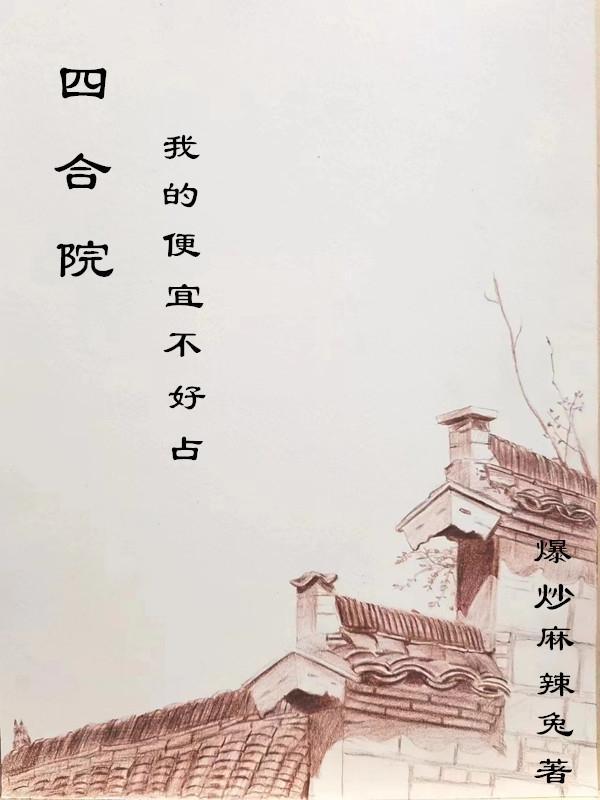 四合院
我的便宜不好占
爆炒麻辣兔著